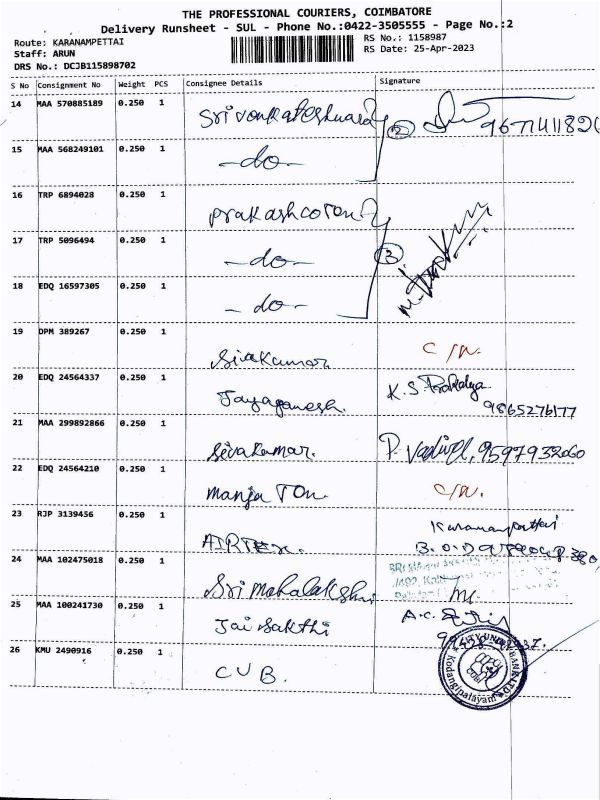 THE PROFESSIONAL COURIERS, COIMBATORE
Delivery Runsheet - SUL - Phone No.:0422-3505555 - Page No.:2
Route: KARANAMPETTAI
RS No.: 1158987
Staff: ARUN
RS Date: 25-Apr-2023
DRS No.: DCJB115898702
S No Consignment No Weight PCS Consignee Details Signature
14 MAA 570885189 0.250 1
2
15 MAA 568249101 0.250 1 -do-
16 TRP 6894028 0.250 1
17 TRP 5096494 0.250 1 -do-
3
18 EDQ 16597305 0.250 1 -do-
19 DPM 389267 0.250 1 Sivakumar C/N.
20 EDQ 24564337 0.250 1 Jayaganesh. K.S.
9865276177
21 MAA 299892866 0.250 1 Sivakumar. P. Vadivel,
22 EDQ 24564210 0.250 1 Manja TON. C/N.
23 RJP 3139456 0.250 1 AIRTEX. Karanampettai
24 MAA 102475018 0.250 1 Sri mahalakshmi
25 MAA 100241730 0.250 1 Jai Sakthi A.C.
26 KMU 2490916 0.250 1 CUB.
CITY UNION BANK LTD
Kodangipalayam